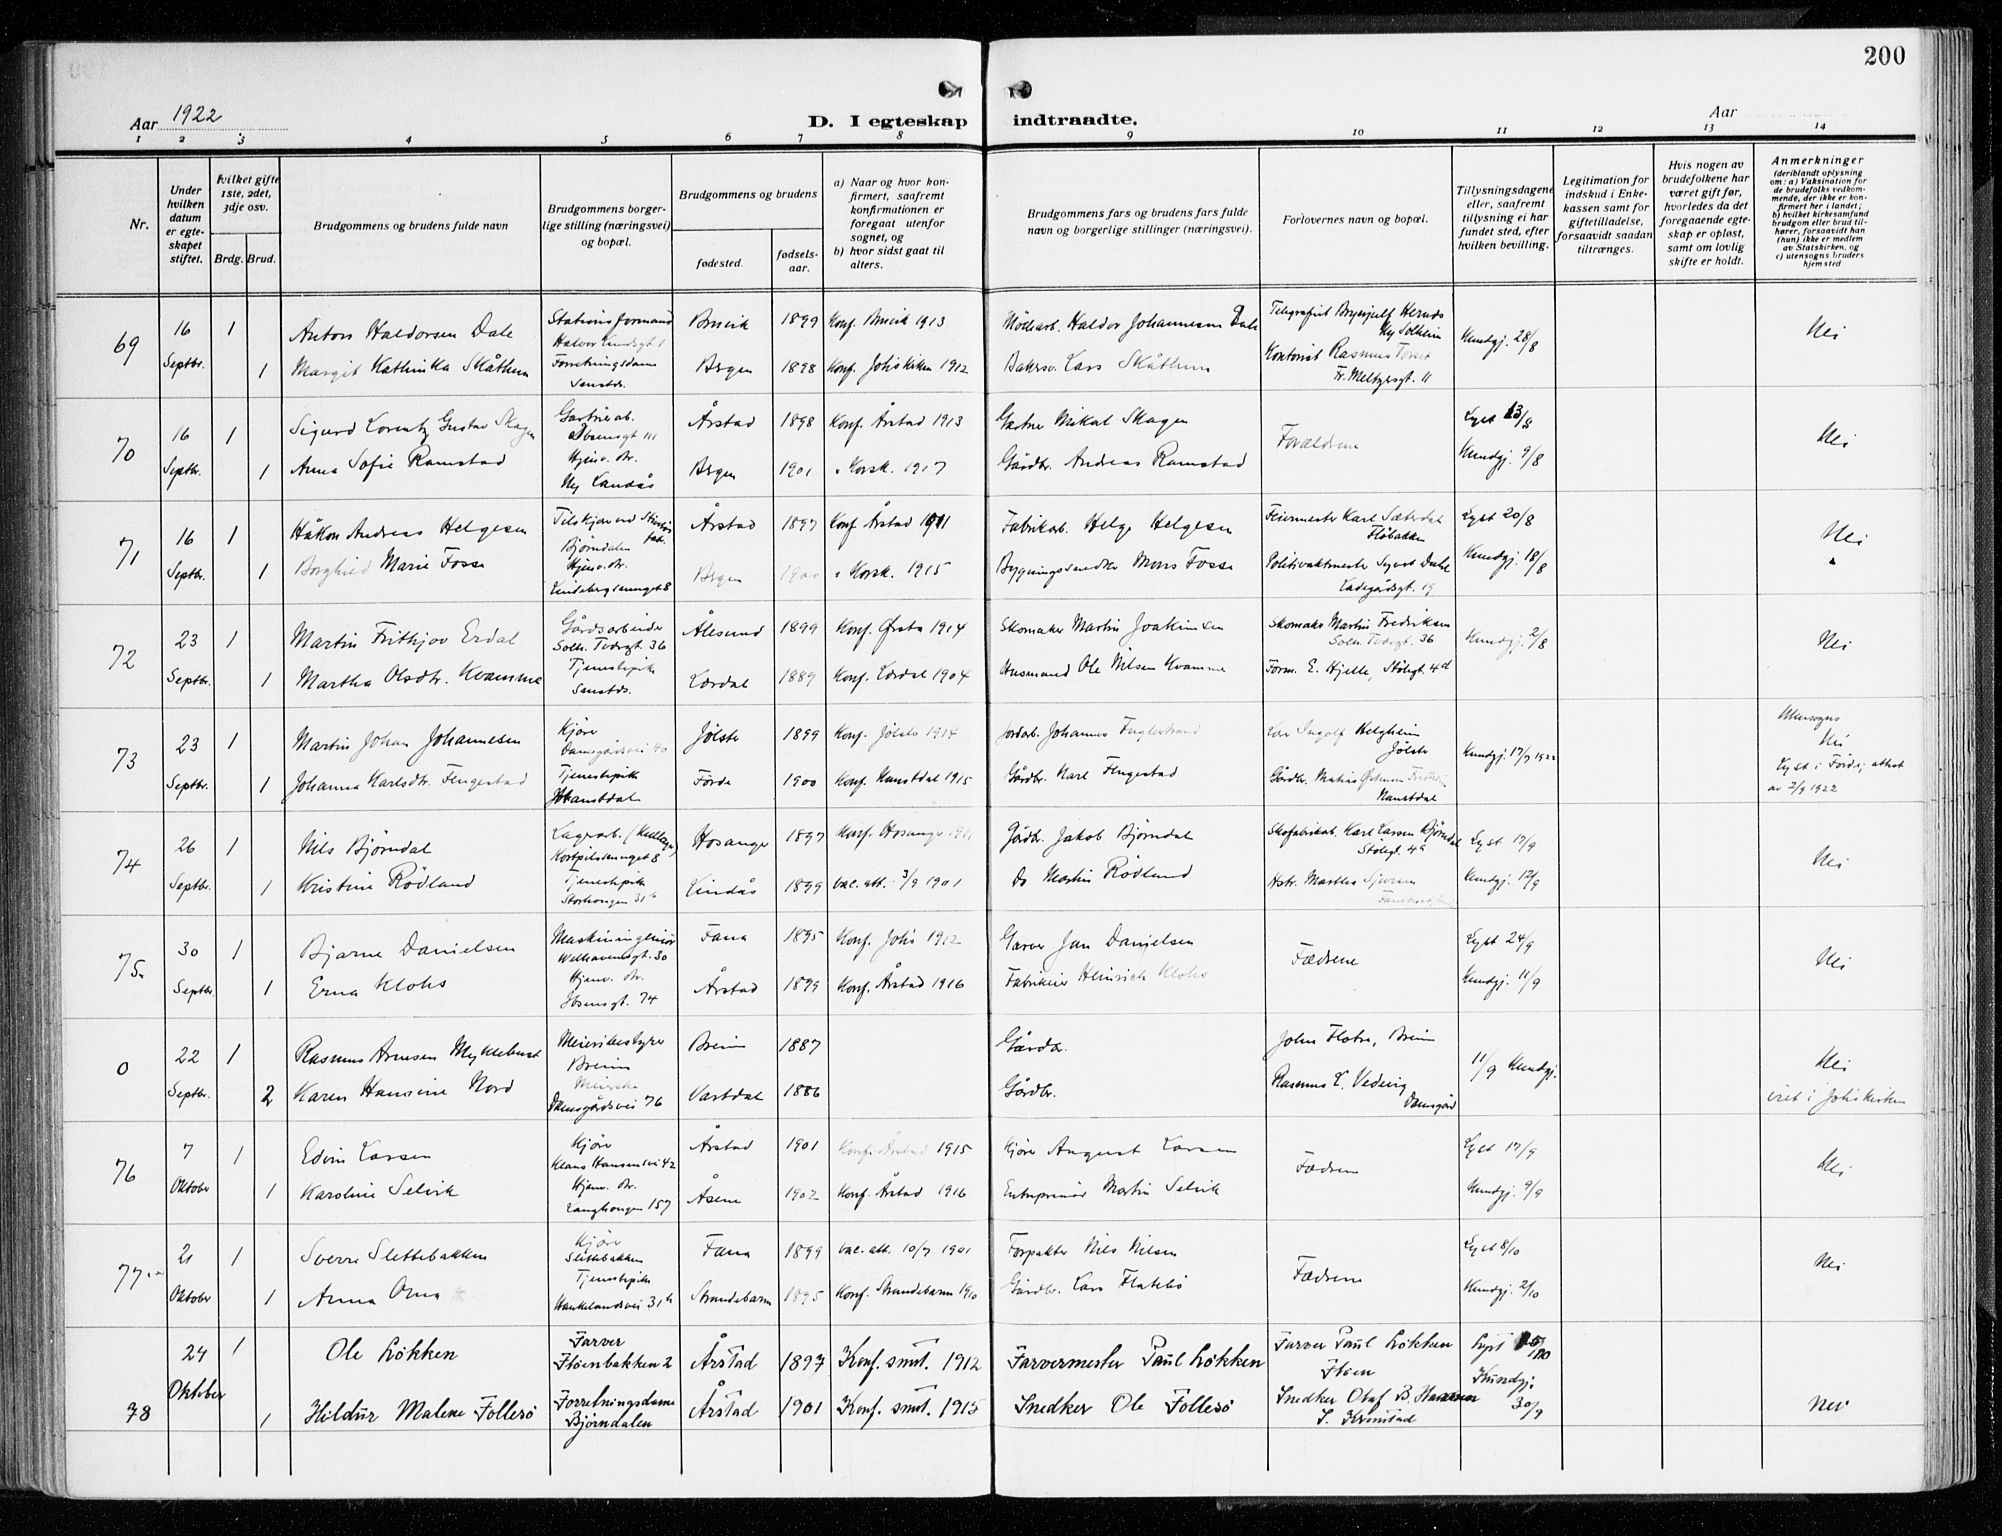 200
Aar 1922
D. I egteskap indtraadte.
Aar
1 2 3 4 5 6 7 8 9 10 11 12 13 14
Nr.
Under hvilken datum er egteskapet stiftet.
Hvilket gifte 1ste, 2det, 3dje osv.
Brdg. Brud.
Brudgommens og brudens fulde navn
Brudgommens borgerlige stilling (næringsvei) og bopæl.
Brudgommens og brudens
fødested.
fødselsaar.
a) Naar og hvor konfirmert, saafremt konfirmationen er foregaat utenfor sognet, og
b) hvor sidst gaat til alters.
Brudgommens fars og brudens fars fulde navn og borgerlige stillinger (næringsvei).
Forlovernes navn og bopæl.
Tillysningsdagene eller, saafremt tillysning ei har fundet sted, efter hvilken bevilling.
Legitimation for indskud i Enkekassen samt for giftetilladelse, forsaavidt saadan tiltrænges.
Hvis nogen av brudefolkene har været gift før, hvorledes da det foregaaende egteskap er opløst, samt om lovlig skifte er holdt.
Anmerkninger
(deriblandt oplysning om: a) Vaksination for de brudefolks vedkommende, der ikke er konfirmert her i landet; b) hvilket kirkesamfund brudgom eller brud tilhører, forsaavidt han (hun) ikke er medlem av Statskirken, og c) utensogns bruders hjemsted
69 16 1 Anton Haldorsen Dale Stationsformand Halvor Lindsgt 1 Bruvik 1899 Konf. Bruvik 1913 Haldor Johannesen Dale Kundgj. 28/8 Nei
Septbr. 1 Margit Kathinka Skåthun Forretningsdame Bergen 1898 Konf. Johskirken 1912 Lars Skåthun Kontorist Rasmus Torset Fr. Meltzersgt. 11
70 16 1 Sigurd Lorentz Gustav Skagen Ibsensgt 111 Årstad 1898 Konf. Årstad 1913 Gartner Mikal Skagen Forældrene Lyst 13/8 Nei
Septbr. 1 Anna Sofie Ramstad Hjemv. dtr. Ny Landås Bergen 1901 " Korsk. 1917 Gårdbr. Andreas Ramstad Kundgj. 9/8
71 16 1 Håkon Andreas Helgesen Bjørndalen Årstad 1897 Konf. Årstad 1911 Fabrikarb. Helge Helgesen Feiermester Karl Sæterdal Fløbakken Lyst 20/8 Nei
Septbr. 1 Borghild Marie Fosse Hjemv. dtr. Bergen 1900 " Korsk. 1915 Bygningssnedker Mons Fosse Ladegårdsgt. 19 Kundgj. 18/8 "
72 23 1 Martin Frithjov Erdal Gårdsarbeider Solh. Tverrgt. 36 Ålesund 1899 Konf. Ørsta 1914 Skomaker Martin Joakimsen Skomaker Martin Fredriksen Solh. Tverrgt. 36 Kundgj. 2/8 Nei
Septbr. 1 Martha Olsdtr. Kvamme Tjenestepike Lærdal 1889 Konf. Lærdal 1904 Husmand Ole Nilsen Kvamme Form. E. Hjelle, Stølegt 4d
73 23 1 Martin Johan Johannesen Kjører Damsgårdsvei 40 Jølster 1899 Konf. Jølster 1914 Jordarb. Johannes Fuglestrand Helgheim Jølster Kundgj. 17/7 1922 Utensogns Nei
Septbr. 1 Johanna Karlsdtr. Flugestad Tjenestepike Førde 1900 Konf. Naustdal 1915 Gårdbr. Karl Flugestad Naustdal Lyst i Førde, attest av 2/9 1922
74 26 1 Nils Bjørndal Hosanger 1897 Konf. Hosanger 1911 Gårdbr. Jakob Bjørndal Skofabrikarb. Karl Larsen Bjørndal Stølegt. 4a Lyst 17/9 Nei
Septbr. 1 Kristine Rødland Tjenestepike Storhaugen 31b Lindås 1899 vac. att. 3/9 1901 Do Martin Rødland Kundgj. 12/9
75 30 1 Bjarne Danielsen Maskiningeniør Welhavensgt. 30 Fana 1895 Konf. Johs 1912 Garver Jan Danielsen Fædrene Lyst 24/9 Nei
Septbr. 1 Erna Klohs Hjemv. dtr. Ibsensgt. 74 Årstad 1899 Konf. Årstad 1916 Heinrich Klohs Kundgj. 11/9
0 22 1 Rasmus Arnesen Myklebust Meieribestyrer Breim Breim 1887 Gårdbr. John Flotre, Breim 11/9 Kundgj. Nei
Septbr. 2 Karen Hansine Nord Damsgårdsvei 76 Vartdal 1886 Gårdbr. Rasmus L. Vedvig Damsgård viet i Johskirken
76 7 1 Edvin Larsen Kjører Klaus Hansensvei 42 Årstad 1901 Konf. Årstad 1915 Kjører August Larsen Fædrene Lyst 17/9 Nei
Oktober 1 Karoline Selvik Hjemv. dtr. Langhaugen 157 Åsene 1902 Konf. Årstad 1916 Entreprenør Martin Selvik Kundgj. 9/9
77 21 1 Sverre Slettebakken Kjører Slettebakken Fana 1899 vac. att. 10/7 1901 Forpakter Nils Nilsen Fædrene Lyst 8/10 Nei
Oktober 1 Anna Oma Tjenestepike Haukelandsvei 31b Strandebarm 1895 Konf. Strandebarm 1910 Gårdbr. Lars Flatebø Kundgj. 2/10
78 24 1 Ole Løkken Farver Fløenbakken 2 Årstad 1897 Konf. smst. 1912 Farvermester Paul Løkken Farver Paul Løkken Fløen Lyst 15/10
Oktober 1 Hildur Malene Follesø Forretningsdame Bjørndalen Årstad 1901 Konf. smst. 1915 Snedker Ole Follesø Snedker Olaf B. Hansen Kundgj. 30/9 Nei